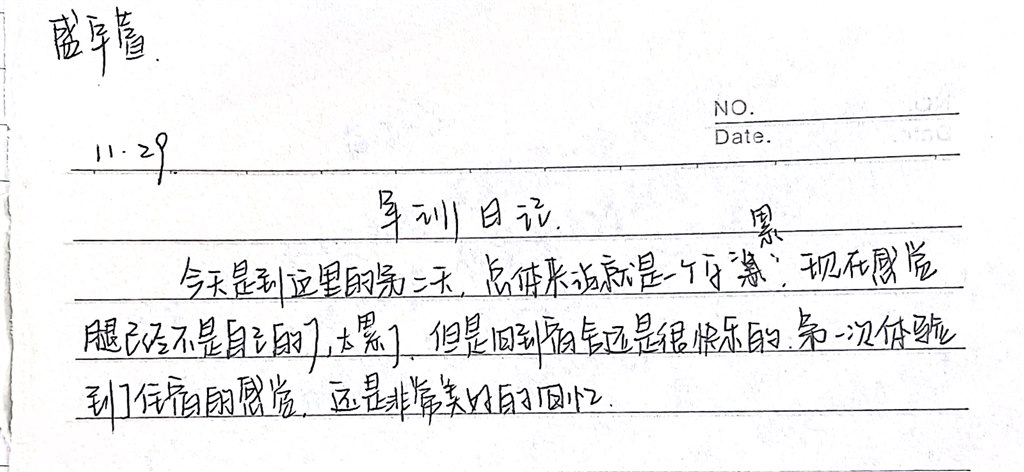 盛军萱.
NO.
Date.
11.29
军训日记.
累
今天是到这里的第二天,总体来说就是一个字:现在感觉
腿已经不是自己的了,太累了.但是回到宿舍还是很快乐的.第一次体验
到了住宿的感觉,还是非常美好的回忆.